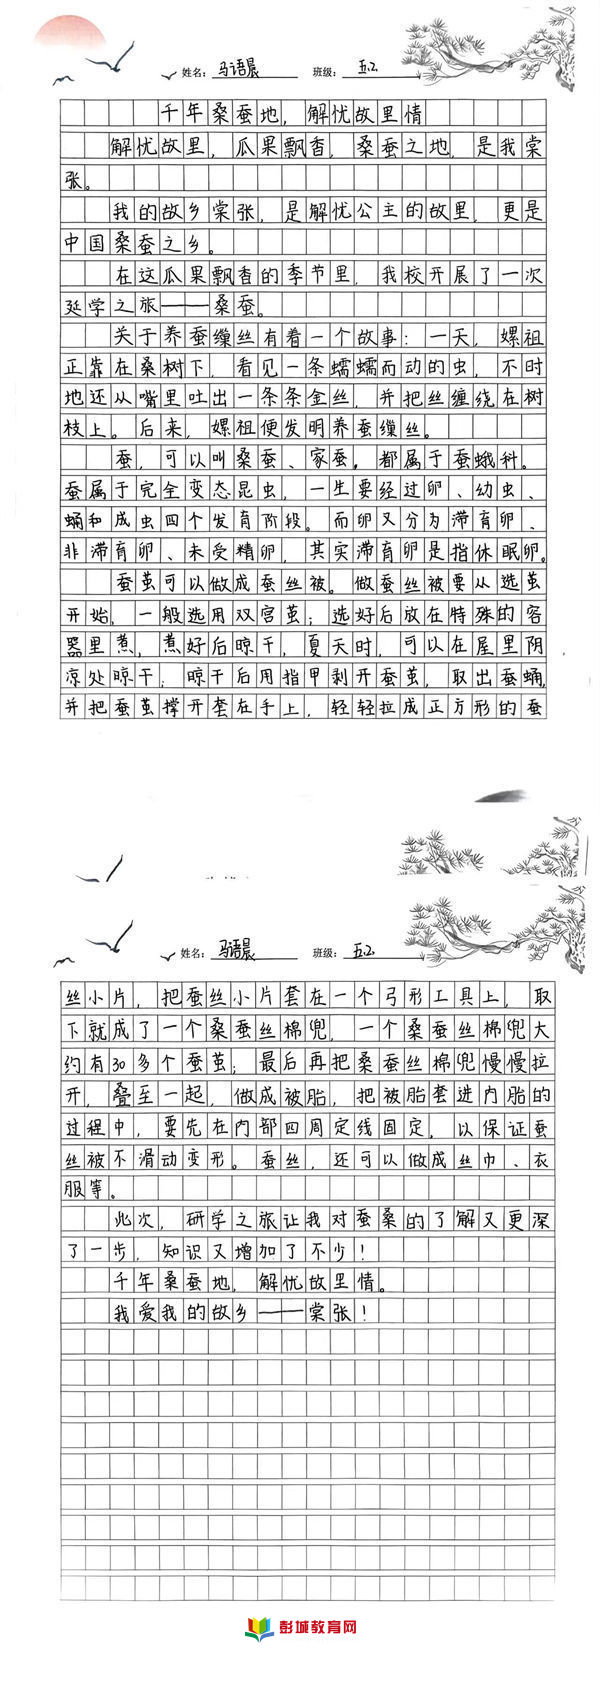 姓名：马语晨 班级：五.2.
千年桑蚕地，解忧故里情
解忧故里，瓜果飘香，桑蚕之地，是我棠
张。
我的故乡棠张，是解忧公主的故里，更是
中国桑蚕之乡。
在这瓜果飘香的季节里，我校开展了一次
延学之旅——桑蚕。
关于养蚕缫丝有着一个故事：一天，嫘祖
正靠在桑树下，看见一条蠕蠕而动的虫，不时
地还从嘴里吐出一条条金丝，并把丝缠绕在树
枝上。后来，嫘祖便发明养蚕缫丝。
蚕，可以叫桑蚕、家蚕。都属于蚕蛾科。
蚕属于完全变态昆虫，一生要经过卵、幼虫、
蛹和成虫四个发育阶段。而卵又分为滞育卵、
非滞育卵、未受精卵，其实滞育卵是指休眠卵。
蚕茧可以做成蚕丝被。做蚕丝被要从选茧
开始，一般选用双宫茧；选好后放在特殊的容
器里煮，煮好后晾干，夏天时，可以在屋里阴
凉处晾干；晾干后用指甲剥开蚕茧，取出蚕蛹，
并把蚕茧撑开套在手上，轻轻拉成正方形的蚕
姓名：马语晨 班级：五.2.
丝小片，把蚕丝小片套在一个弓形工具上，取
下就成了一个桑蚕丝棉兜，一个桑蚕丝棉兜大
约有30多个蚕茧；最后再把桑蚕丝棉兜慢慢拉
开，叠至一起，做成被胎，把被胎套进内胎的
过程中，要先在内部四周定线固定，以保证蚕
丝被不滑动变形。蚕丝，还可以做成丝巾、衣
服等。
此次，研学之旅让我对蚕桑的了解又更深
了一步，知识又增加了不少！
千年桑蚕地，解忧故里情。
我爱我的故乡——棠张！
彭城教育网